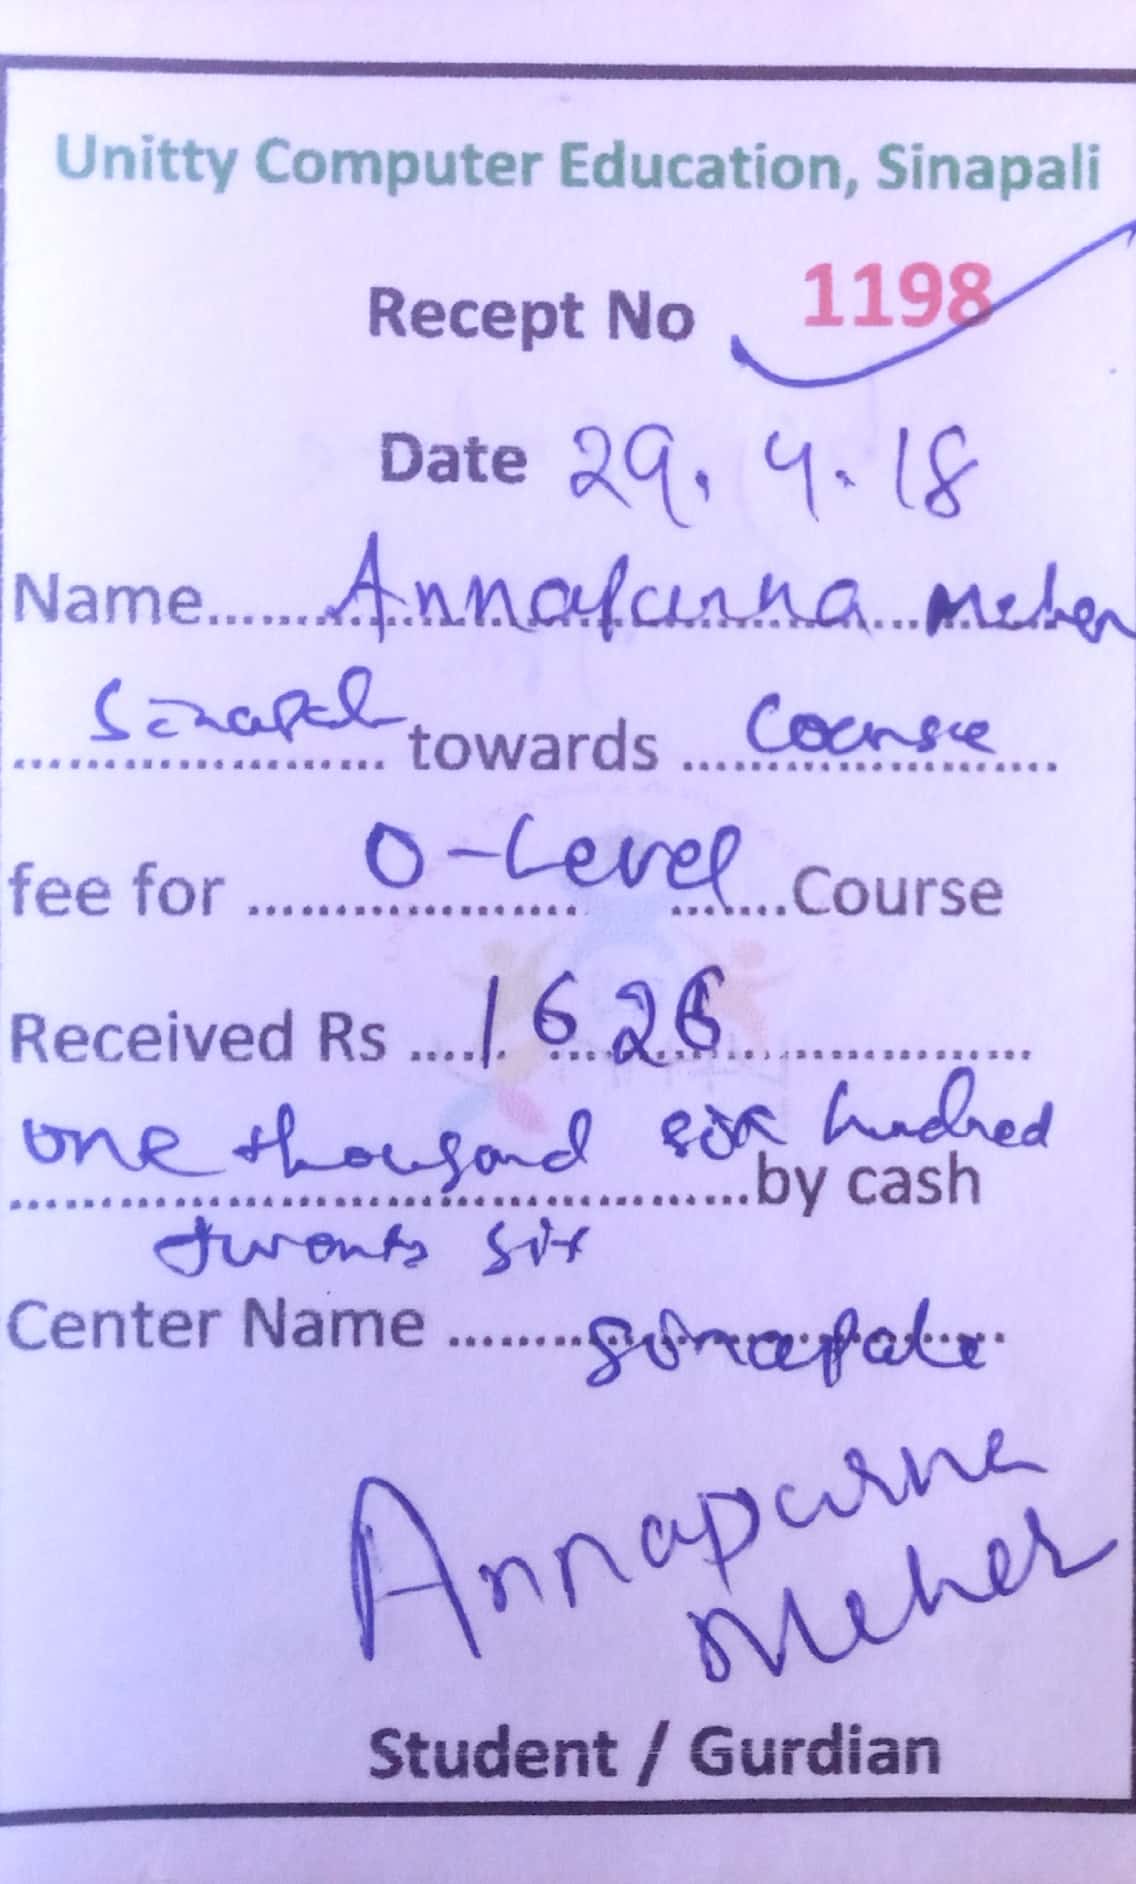 Unitty Computer Education, Sinapali
Recept No 1198
Date 29.4.18
Name........Annapurna Meher
Sinapali towards Course
fee for O-Level Course
Received Rs 1626
one thousand six hundred
by cash
twenty six
Center Name Sinapali
Annapurna
Meher
Student / Gurdian